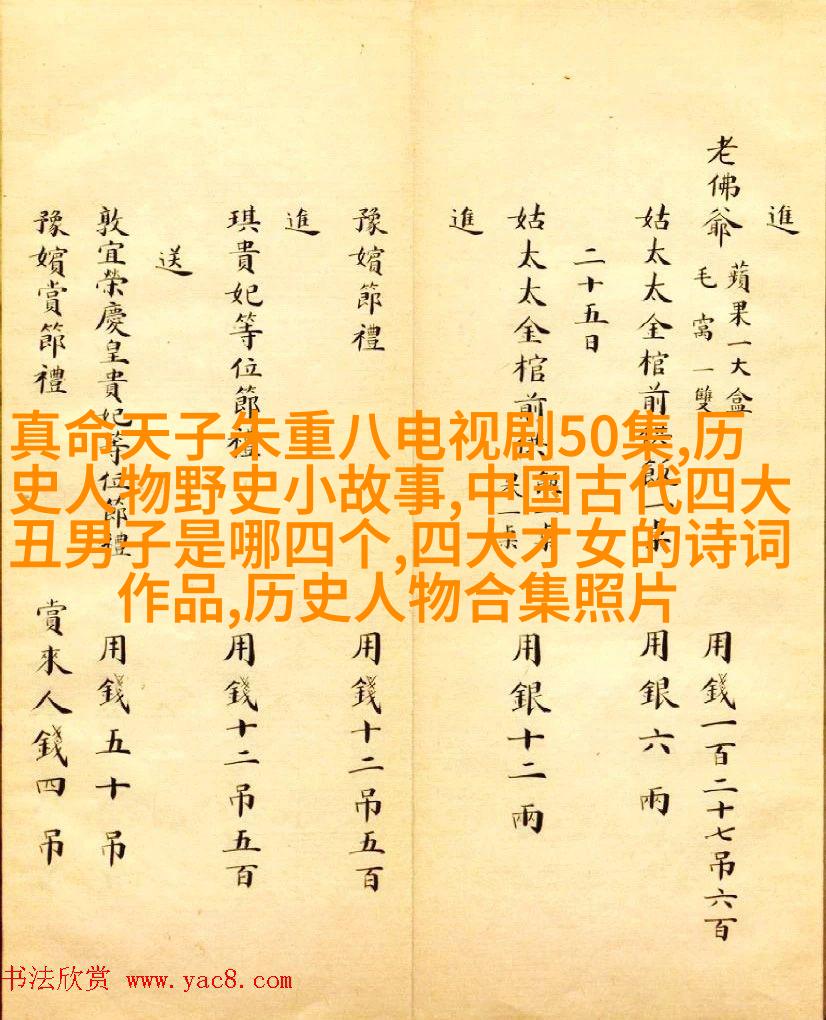 進
老佛爺 蘋果一大盒 毛窩一雙 用錢一百二十七吊六百
姑太太金棺前供飯一桌 用銀六兩
二十五日
姑太太金棺前 一桌 用銀十二兩
進
豫嬪節禮 用錢十二吊五百
進
琪貴妃等位節禮 用錢十二吊五百
送
敦宜榮慶皇貴妃等位節禮 用錢五十吊
豫嬪賞節禮 賞來人錢四吊
真命天子朱重八电视剧50集,历
史人物野史小故事,中国古代四大
丑男子是哪四个,四大才女的诗词
作品,历史人物合集照片
书法欣赏 www.yac8.com